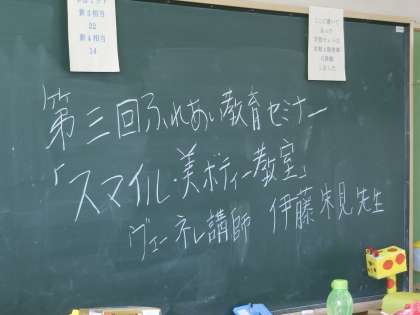 新3相当
22
新4相当
14
第三回ふれあい教育セミナー
「スマイル・美ボディー教室」
ヴェーネレ講師 伊藤朱見先生